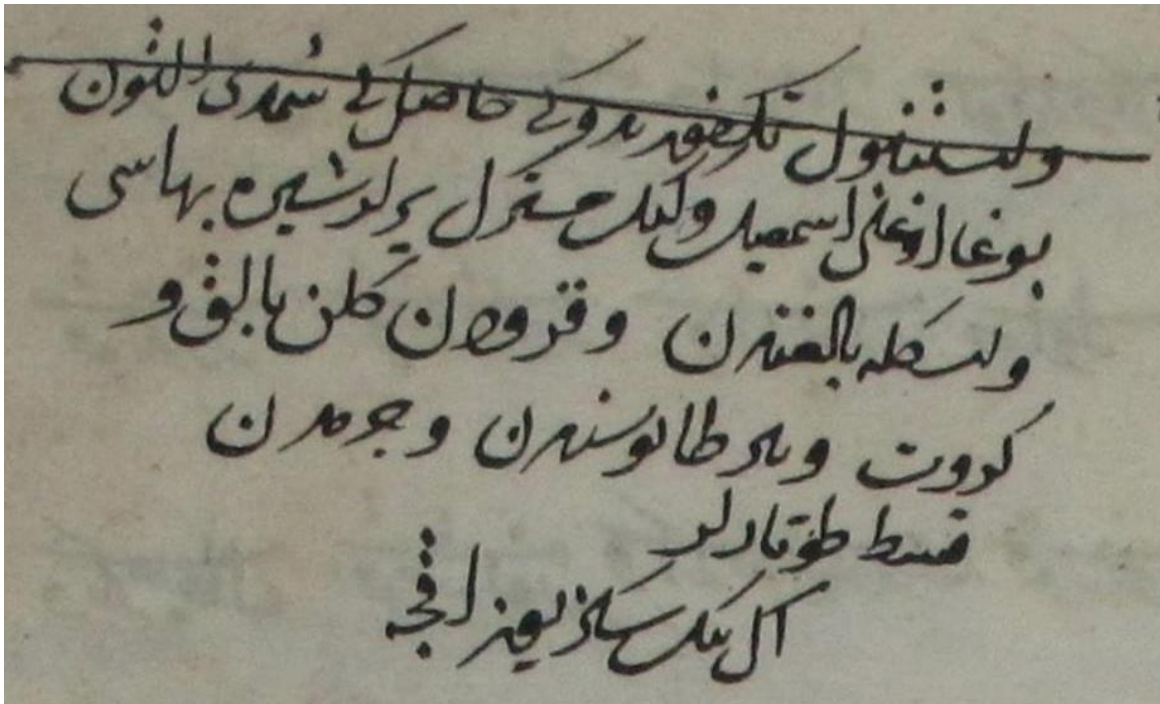 ولستنبول تكفورندوكى حاصل كى شمدى التون
بوغا اوغلى اسمعيل وكيك منزل يرلر شيره بهاسى
ولسكله بالغندن وقرهدن كلن بالق و
كروت وير طاپوسندن وجرمدن
قسط طوتارلر
اللى بيك سكز يوز اقچه